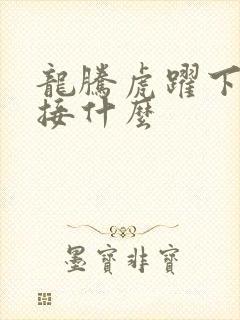 龍騰虎躍下
接什麼
墨寶非寶